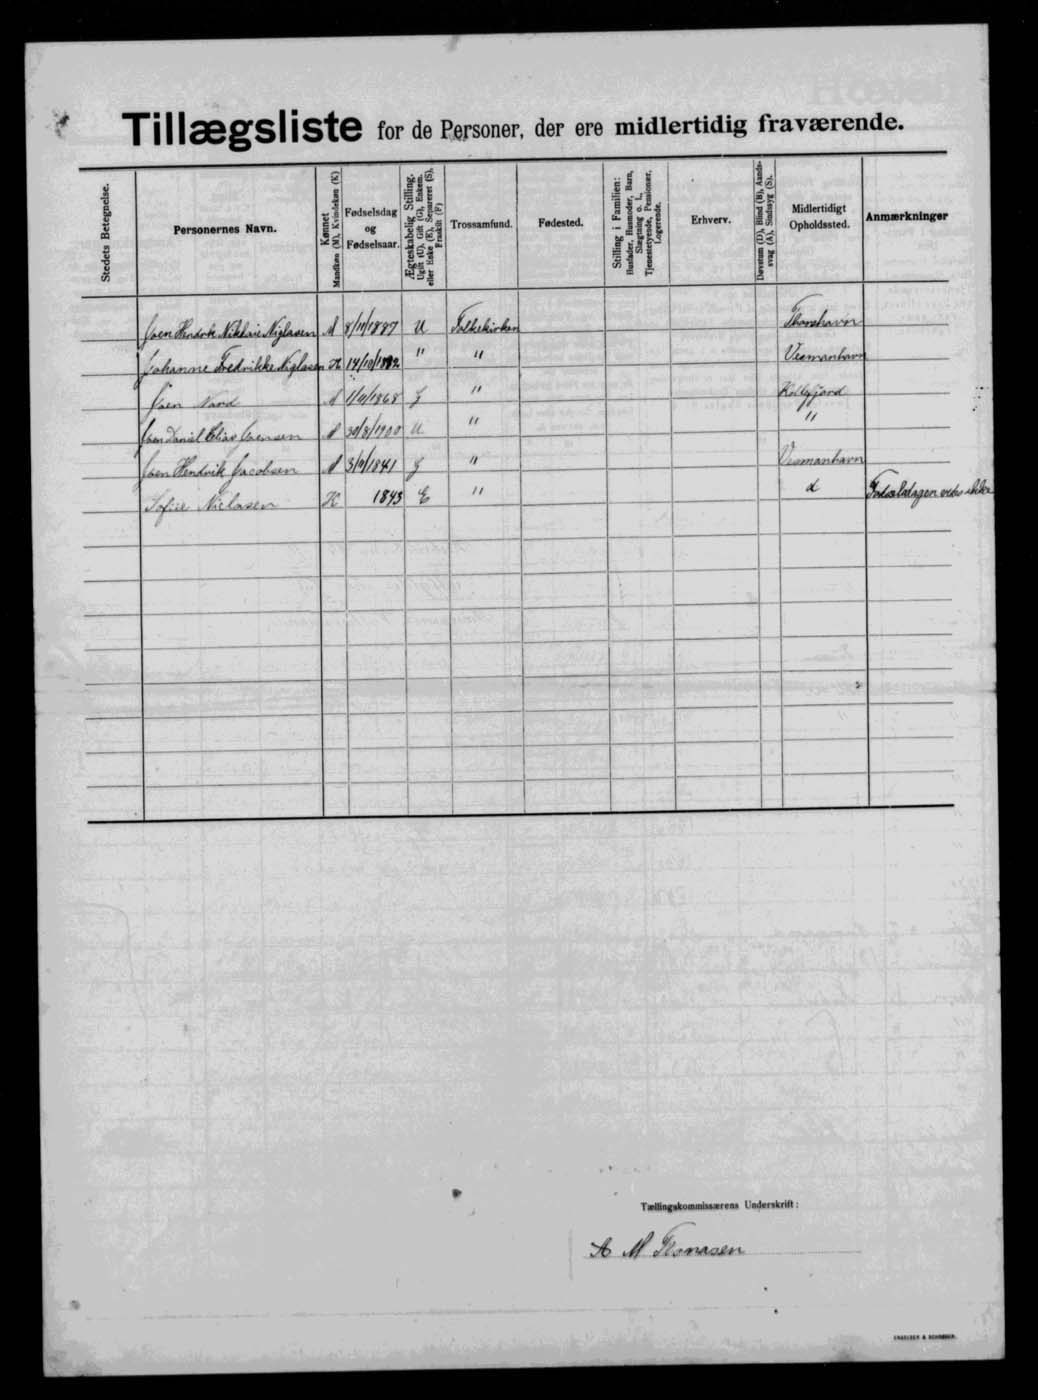 Tillægsliste for de Personer, der ere midlertidig fraværende.
Stedets Betegnelse.
Personernes Navn.
Kønnet
Mandkøn (M), Kvindekøn (K)
Fødselsdag
og
Fødselsaar.
Ægteskabelig Stilling.
Ugift (U), Gift (G), Enkem.
eller Enke (E), Separeret (S),
Fraskilt (F)
Trossamfund.
Fødested.
Stilling i Familien:
Husfader, Husmoder, Barn,
Slægtning o. l.,
Tjenestetyende, Pensionær,
Logerende.
Erhverv.
Døvstum (D), Blind (B), Aands-
svag (A), Sindssyg (S).
Midlertidigt
Opholdssted.
Anmærkninger
Joen Hendrik Nikolaie Niglasen M 8/11/1887 U Folkekirken Thorshavn
Johanne Fredrikke Niglasen K 14/10/1882 " " Vesmanhavn
Joen M 1/11/1868 G " Kollefjord
Joen Daniel Elias Joensen M 30/8/1900 U " "
Joen Hendrik Jacobsen M 1841 G " Vesmanhavn
Sofie Niclasen K 1843 E " d Fødselsdagen vides ikke
Tællingskommissærens Underskrift:
A M Thomasen
ENGELSEN & SCHRØDER.